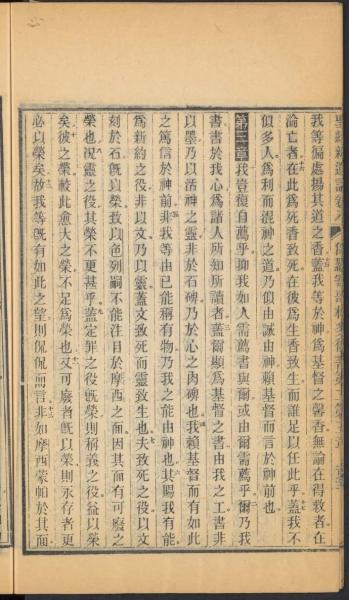 我等徧處揚其道之香蓋我等於神爲基督之馨香無論在得救者在
淪亡者在此爲死香致死在彼爲生香致生而誰足以任此乎蓋我不
似多人爲利而混神之道乃似由誠由神賴基督而言於神前也
第三章我豈復自薦乎抑我如人需薦書與爾或由爾需薦乎爾乃我
書書於我心爲諸人所知所讀者蓋爾顯爲基督之書由我之工書非
以墨乃以活神之靈非於石碑乃於心之肉碑也我賴基督而有如此
之篤信於神前非我等由已能稱有物乃我之能由神也其賜我有能
爲新約之役非以文乃以靈蓋文致死而靈致生也夫致死之役以文
刻於石既以榮致以色列嗣不能注目於摩西之面因其面有可廢之
榮也況靈之役其榮不更甚乎蓋定罪之役既榮則稱義之役益以榮
矣彼之榮較此愈大之榮不足爲榮也又可廢者既以榮則永存者更
必以榮矣故我等既有如此之望則侃侃而言非如摩西蒙帕於其面